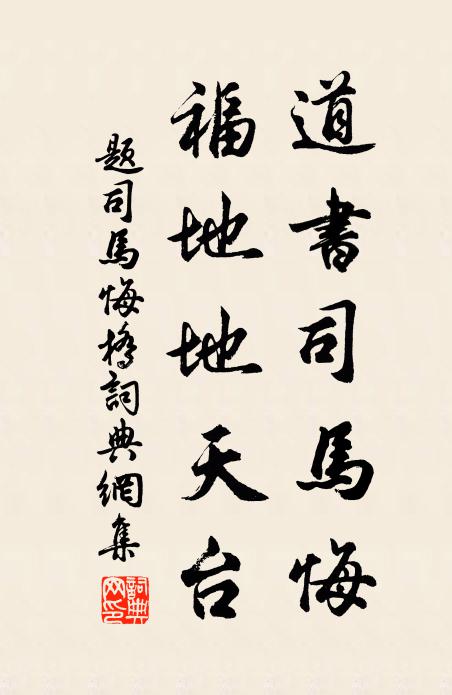 道書司馬悔
福地地天台
題司馬悔橋詞典網集
詞典網印